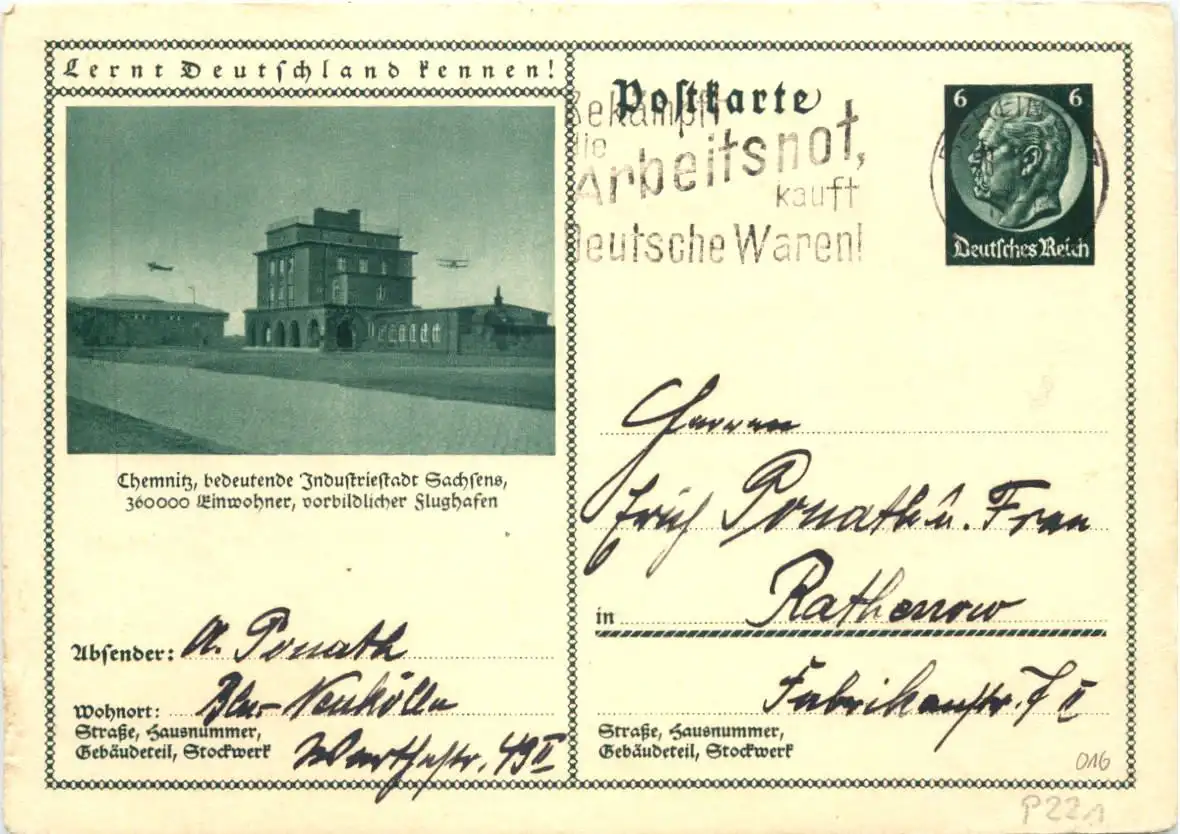 Lernt Deutschland kennen!
Postkarte
Bekämpft
die
Arbeitsnot,
kauft
Deutsche Waren!
6 6
Deutsches Reich
Chemnitz, bedeutende Industriestadt Sachsens,
360000 Einwohner, vorbildlicher Flughafen
Herren
Erich Ponath u. Frau
in Rathenow
Fabrikenstr. 7 II
Straße, Hausnummer,
Gebäudeteil, Stockwerk
Absender: A. Ponath
Wohnort: Bln-Neukölln
Straße, Hausnummer,
Gebäudeteil, Stockwerk Warthestr. 49 II
016
P221